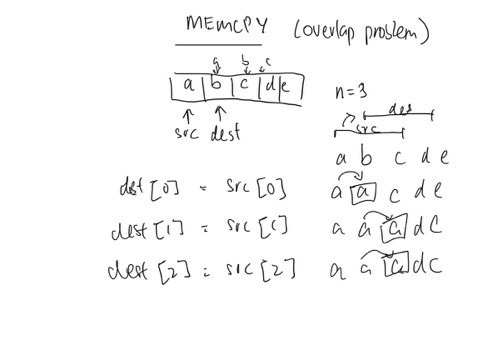 MEMCPY (overlap problem)
a b c
a b c d e
src dest
n=3
des
src
a b c d e
dst [0] = src [0] a a c d e
dest [1] = src [1] a a a d e
dest [2] = src [2] a a a d c